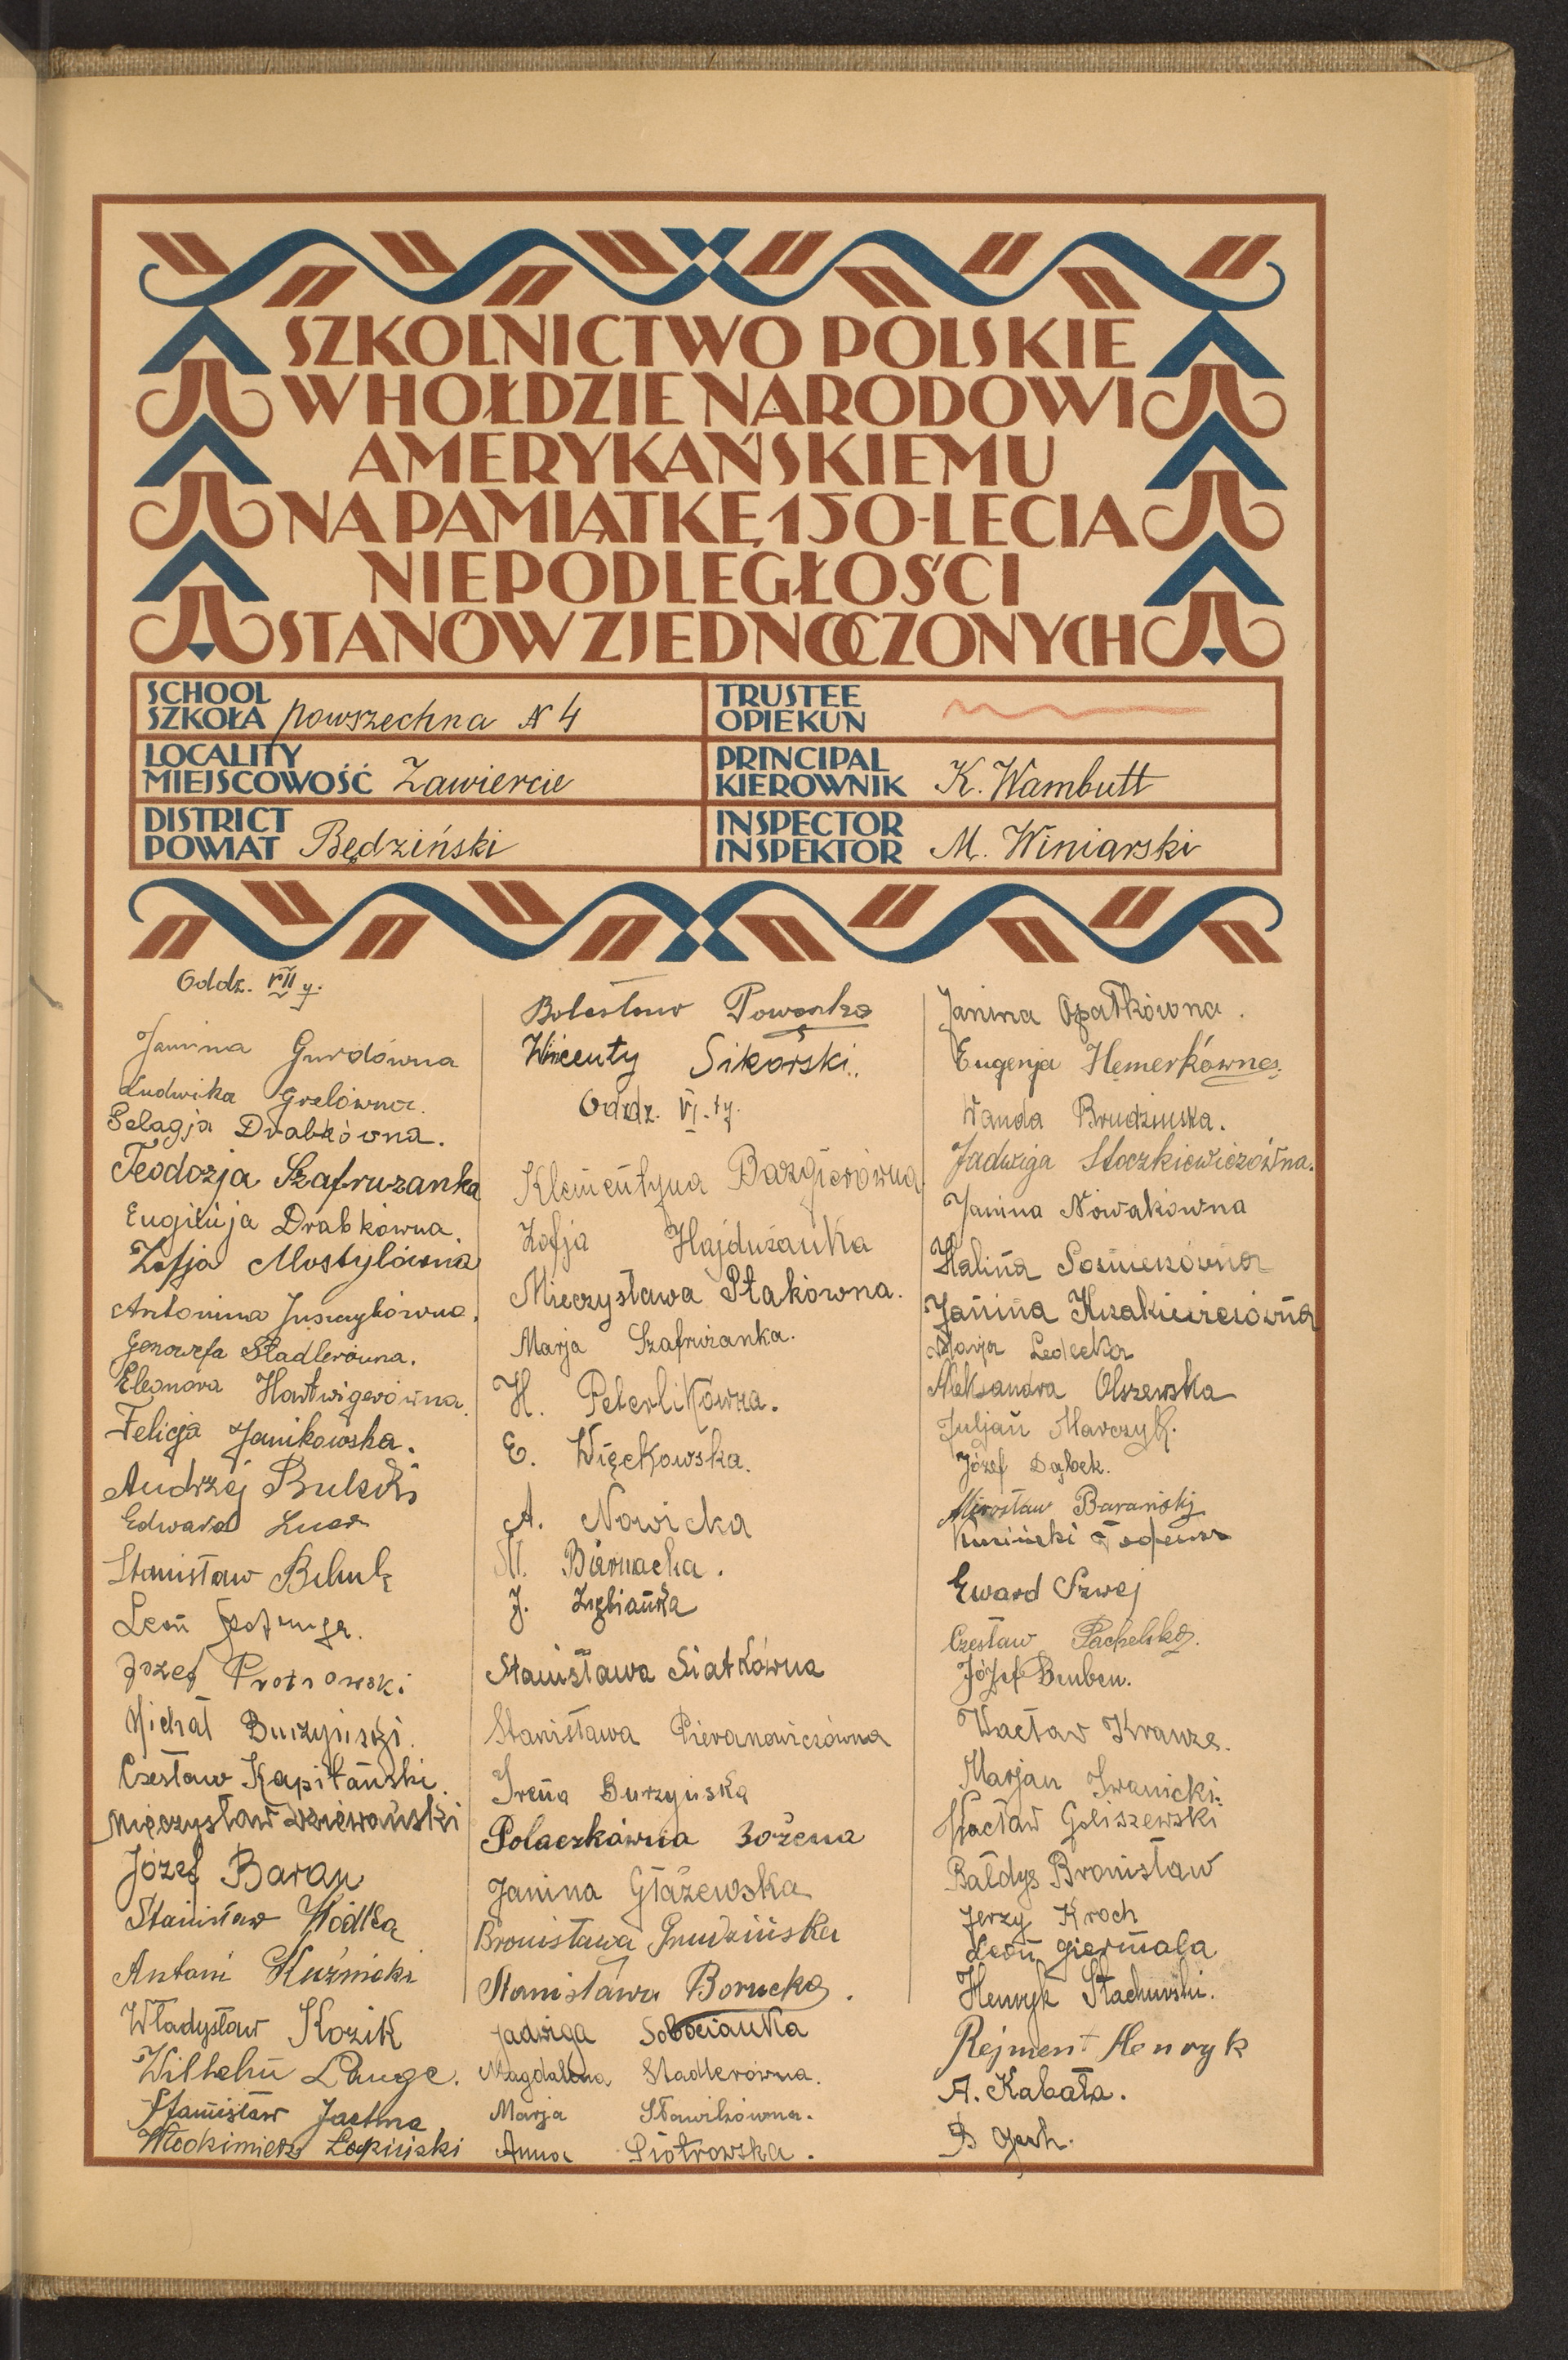 SZKOLNICTWO POLSKIE
W HOŁDZIE NARODOWI
AMERYKAŃSKIEMU
NA PAMIĄTKĘ 150-LECIA
NIEPODLEGŁOŚCI
STANÓW ZJEDNOCZONYCH
SCHOOL
SZKOŁA powszechna N 4
LOCALITY
MIEJSCOWOŚĆ Zawiercie
DISTRICT
POWIAT Będziński
TRUSTEE
OPIEKUN
PRINCIPAL
KIEROWNIK K. Wambutt
INSPECTOR
INSPEKTOR M. Winiarski
Oddz. VII y.
Janina Gurdówna
Ludwika Grelówna.
Pelagja Drabkówna.
Teodozja Szafruzanka
Eugenja Drabkówna.
Zofja Mostylówna
Antonina Juszczykówna.
Genowefa Stadlerówna.
Eleonora Hartwigerówna.
Felicja Janikowska.
Andrzej
Edward
Stanisław
Leon
Józef Piotrowski
Michał Burzyński.
Czesław Kapitański.
Mieczysław Dziewański
Józef Baran
Stanisław Wódka
Antoni Kuźnicki
Władysław Kozik
Wilhelm Lange.
Stanisław Jachna
Włodzimierz Łopiński
Bolesław Powąska
Wincenty Sikorski.
Oddz. VI-ty.
Klementyna Bazgierówna
Zofja Hajdużanka
Mieczysława Ptakówna.
Marja Szafruzanka.
H. Peterlikówna.
E. Więckowska.
A. Nowicka
Biernacka.
J. Zięбianka
Stanisława Siatkówna
Stanisława Pieranowiczówna
Irena Burzyńska
Polaczkówna Bożena
Janina Głażewska
Bronisława Grudzińska
Stanisława Borucka.
Jadwiga Sobocianka
Magdalena Stadlerówna.
Marja Sławikówna.
Anna Piotrowska.
Janina Opatkówna.
Eugenja Hemerkówna.
Wanda Brudzińska.
Jadwiga Stoczkiewiczówna.
Janina Nowakówna
Halina
Janina
Marja Ledecka
Aleksandra Olszewska
Juljan Marczyk.
Józef Dąbek.
Mirosław Barański
Kusiński
Eward Szwej
Czesław Pachelski.
Józef Bruben.
Wacław Krauze.
Marjan Iwanicki.
Wacław Goliszewski
Bałdys Bronisław
Jerzy Kroch
Leon Giermala
Henryk Stachurski.
Rejment Henryk
A. Kabała.